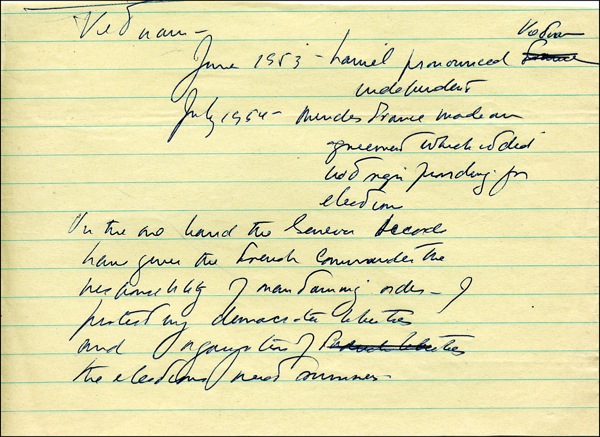 Vietnam –
June 1953 – Laniel pronounced Vietnam
independent
July 1954 – Mendes France made an
agreement which
not sign providing for
election
On the one hand the Geneva Accords
have given the French Commander the
responsibility of maintaining order – of
protecting democratic liberties
and organization of
the elections next summer